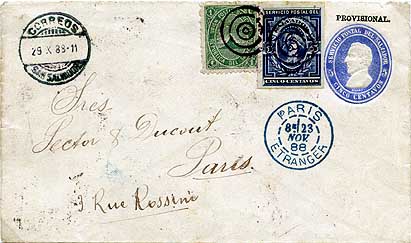 CORREOS
29 X 88-11
SAN SALVADOR
SERVICIO POSTAL DEL
CINCO CENTAVOS
PROVISIONAL.
SERVICIO POSTAL DEL SALVADOR
CINCO CENTAVOS
PARIS
23
NOV
88
ETRANGER
Sres.
& Ducout.
Paris.
Rue Rossini